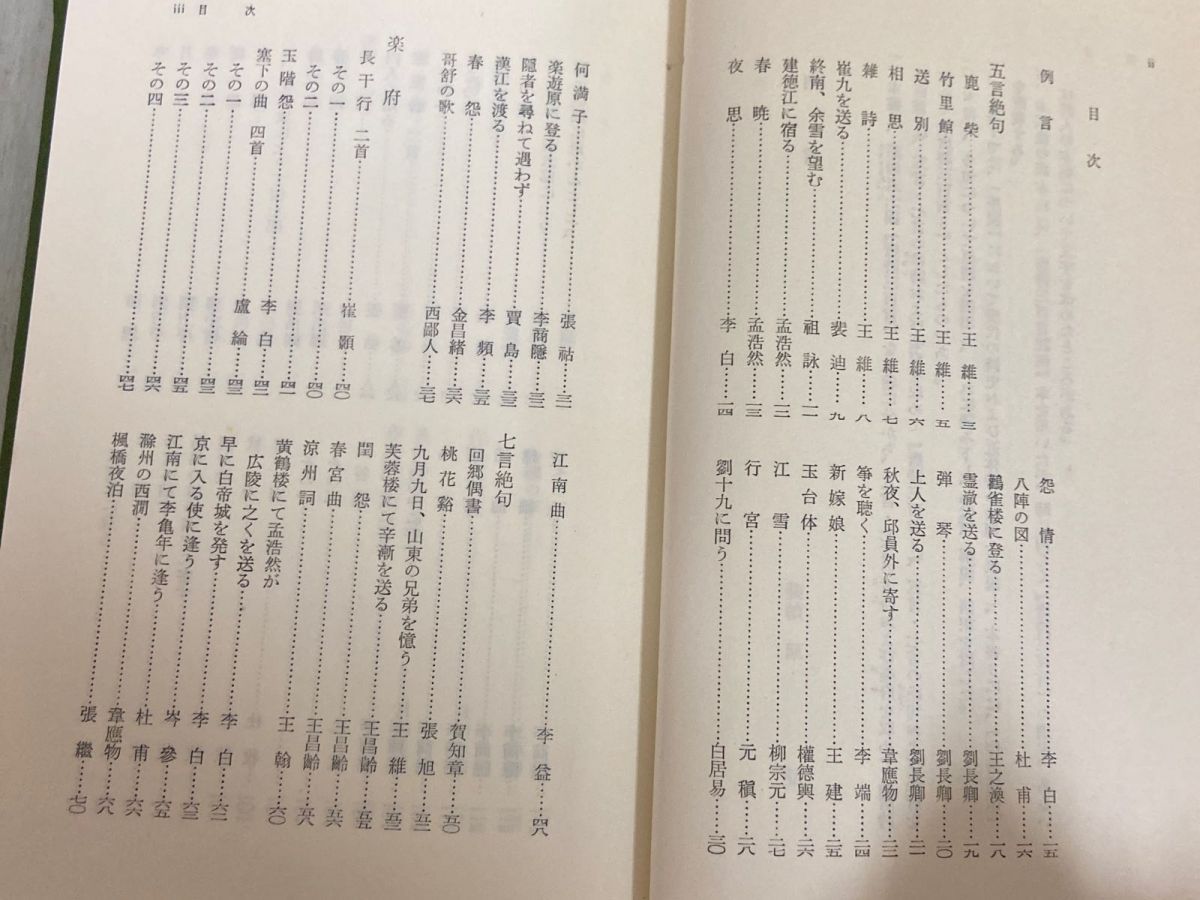 ii
目次
例言
五言絶句
鹿柴 王維 三
竹里館 王維 五
送別 王維 六
相思 王維 七
雑詩 王維 八
崔九を送る 裴迪 九
終南、余雪を望む 祖詠 一一
建徳江に宿る 孟浩然 一二
春暁 孟浩然 一三
夜思 李白 一四
怨情 李白 一五
八陣の図 杜甫 一六
鸛雀楼に登る 王之渙 一八
霊澈を送る 劉長卿 一九
弾琴 劉長卿 二〇
上人を送る 劉長卿 二一
秋夜、邱員外に寄す 韋應物 二二
箏を聴く 李端 二四
新嫁娘 王建 二五
玉台体 權德輿 二六
江雪 柳宗元 二七
行宮 元稹 二八
劉十九に問う 白居易 三〇
何満子 張祜 三一
楽遊原に登る 李商隱 三二
隠者を尋ねて遇わず 賈島 三三
漢江を渡る 李頻 三五
春怨 金昌緒 三六
哥舒の歌 西鄙人 三七
楽府
長干行 二首
その一 崔顥 四〇
その二 四〇
玉階怨 李白 四一
塞下の曲 四首 盧綸 四二
その一 四三
その二 四三
その三 四五
その四 四六
江南曲 李益 四八
七言絶句
回郷偶書 賀知章 五〇
桃花谿 張旭 五二
九月九日、山東の兄弟を憶う 王維 五三
芙蓉楼にて辛漸を送る 王昌齡 五五
閨怨 王昌齡 五六
春宮曲 王昌齡 五八
涼州詞 王翰 六〇
黄鶴楼にて孟浩然が
広陵に之くを送る 李白 六二
早に白帝城を発す 李白 六三
京に入る使に逢う 岑參 六五
江南にて李亀年に逢う 杜甫 六六
滁州の西澗 韋應物 六八
楓橋夜泊 張繼 七〇
目次
iii